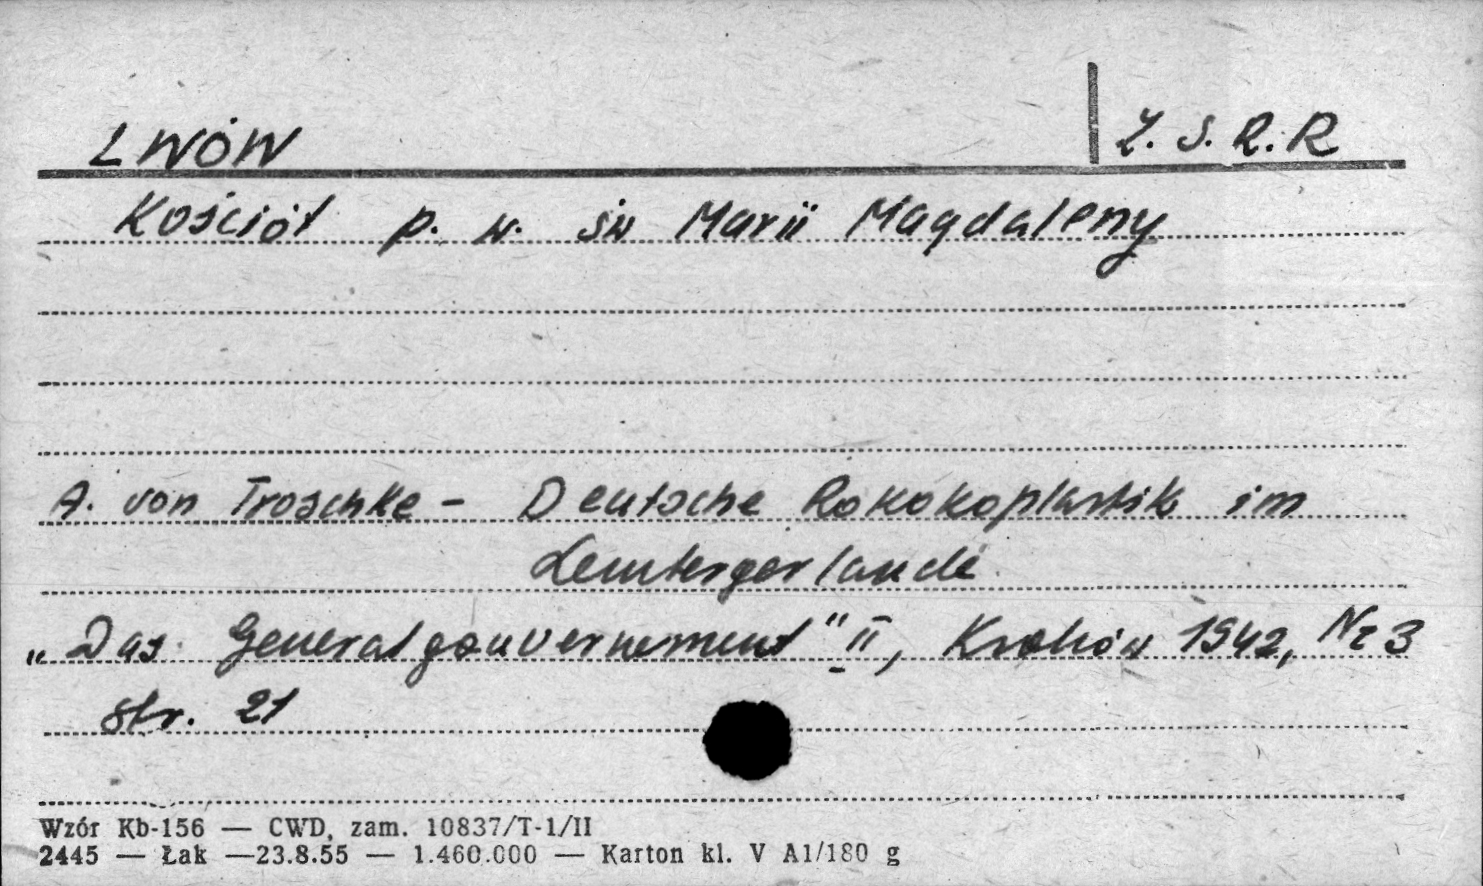 LWÓW
Z. S. R. R
Kościół p. w. św Marii Magdaleny
A. von Troschke - Deutsche Rokokoplastik im
Lembergerlande
„Das Generalgouvernement" II, Kraków 1942, Nr 3
str. 21
Wzór Kb-156 — CWD, zam. 10837/T-1/II
2445 — Łak —23.8.55 — 1.460.000 — Karton kl. V A1/180 g